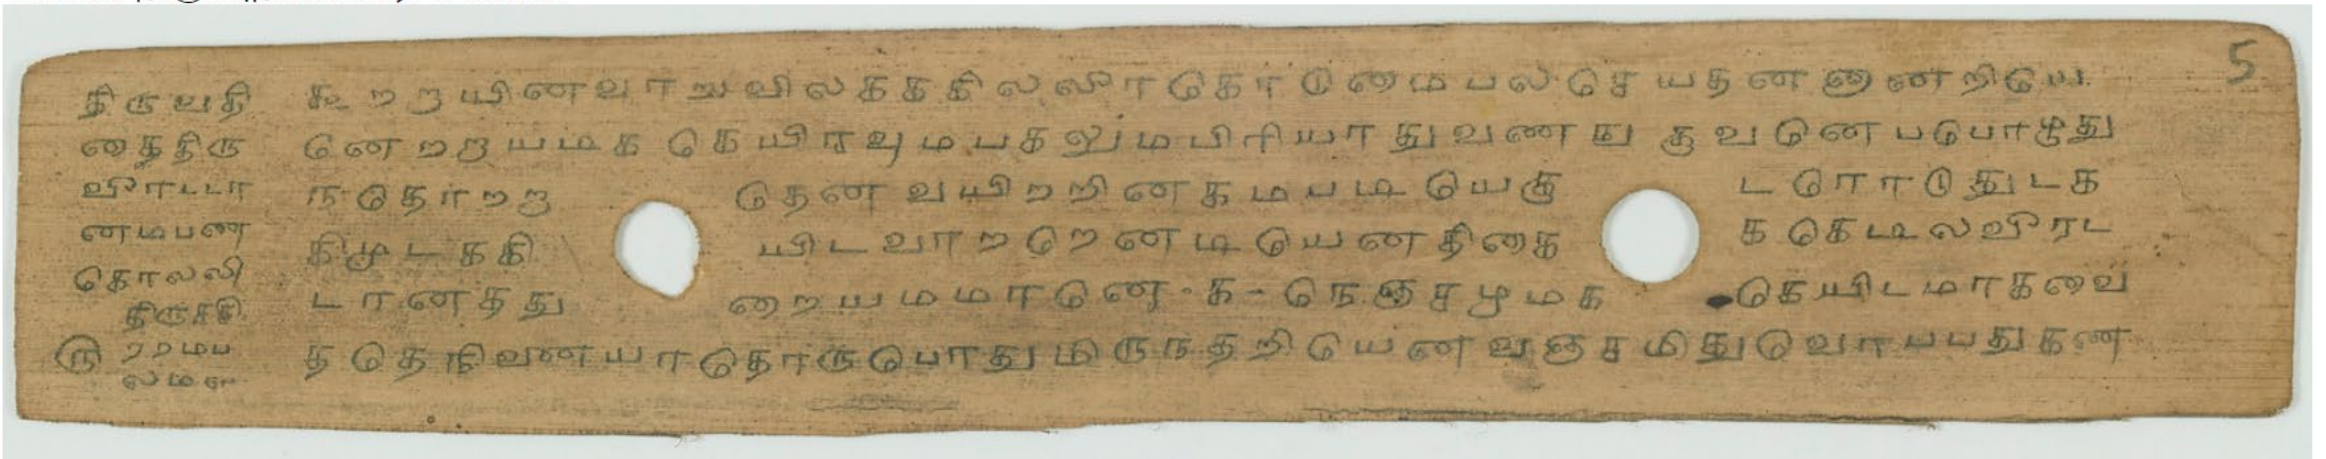 திருவதி
கைதிரு
வீரடடா
னமபண
கொலலி
திருசசி
றறமப
லம
௫
5
கூறறாயினவாறுவிலகககிலலீர கொடுமைபலசெயதனஞனறியெ
னெறறயமககெயிரவுமபகலுமபிரியாதுவணஙகுவனெபபொழுது
நதொறற தெனவயிறறினகமபடியெகு டரொடுதுடக
கிமுடககி யிடவாறறெனடியெனதிகை ககெடிலவீரட
டானதது றையமமானெ - க - நெஞசமுமக கெயிடமாகவை
ததெநினையாதொருபொதுமிருநதறியெனவஞசமிதுவொபபதுகண